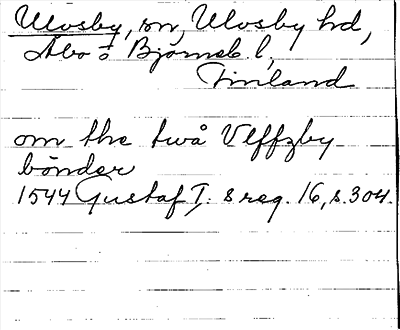 Ulvsby, sn, Ulvsby hd,
Åbo o Björneb. l,
Finland
om the två Vlffzby
bönder
1544 Gustaf I:s reg. 16, s. 304.